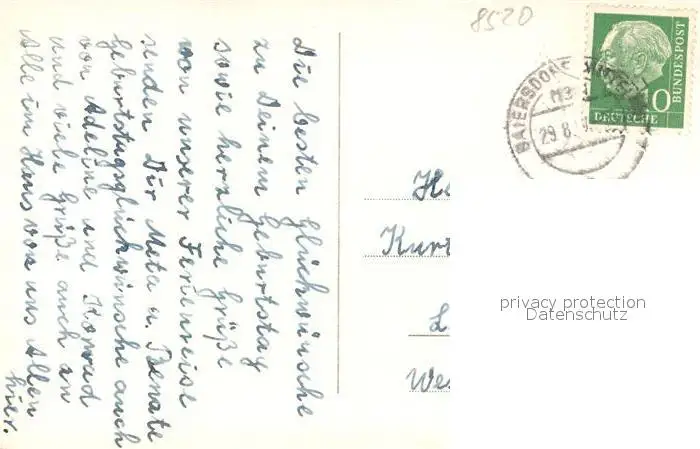 Die besten Glückwünsche
zu Deinem Geburtstag
sowie herzliche Grüße
von unserer Ferienreise
senden Dir Meta u. Renate
Geburtstagsglückwünsche auch
von Adeline und Konrad
und viele Grüße auch an
Alle im Haus von uns Allen
hier.
8520
DEUTSCHE
BUNDESPOST
10
BAIERSDORF
29.8.
Kurt
privacy protection
Datenschutz